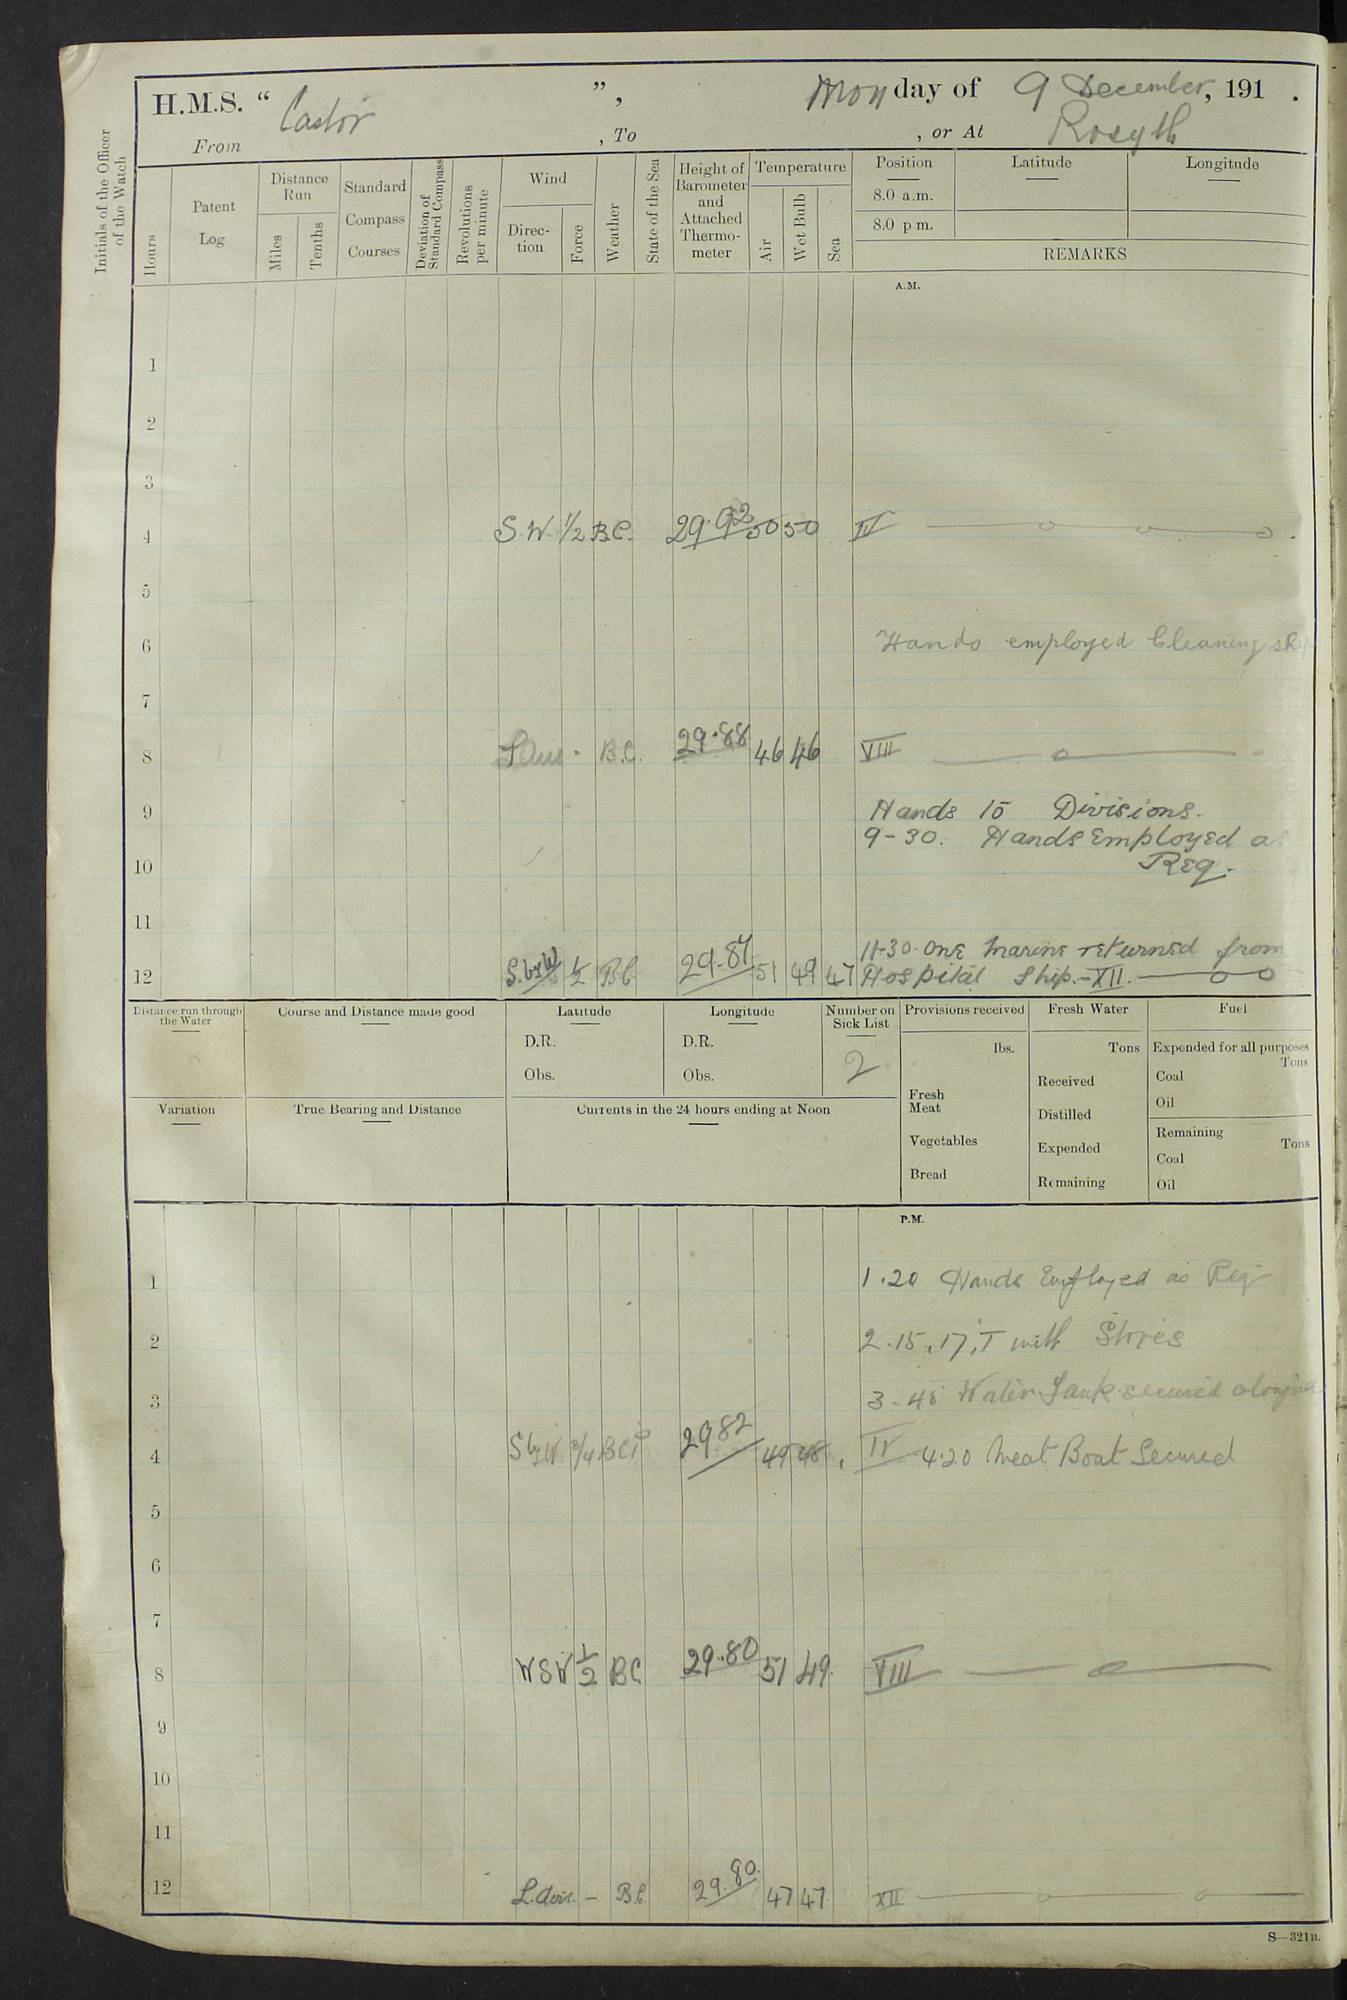 H.M.S. “ Castor ”, Monday of 9 December, 191 .
From , To , or At Rosyth
Initials of the Officer of the Watch
Hours
Patent Log
Distance Run
Miles
Tenths
Standard Compass Courses
Deviation of Standard Compass
Revolutions per minute
Wind
Direc-tion
Force
Weather
State of the Sea
Height of Barometer and Attached Thermo-meter
Temperature
Air
Wet Bulb
Sea
Position Latitude Longitude
8.0 a.m.
8.0 p m.
REMARKS
A.M.
1
2
3
4 S.W. 1/2 B.C. 29.92 50 50 IV
5
6 Hands employed Cleaning
7
8 B.C. 29.88 46 46 VIII
9 Hands to Divisions.
9-30. Hands Employed as
10 Req.
11
11-30. One Marine returned from
12 S.byW 1/2 BC 29.87 51 49 47 Hospital Ship.-XII.
Distance run through the Water
Course and Distance made good
Latitude
D.R.
Obs.
Longitude
D.R.
Obs.
Number on Sick List
2
Provisions received
lbs.
Fresh Meat
Vegetables
Bread
Fresh Water
Tons
Received
Distilled
Expended
Remaining
Fuel
Expended for all purposes
Tons
Coal
Oil
Remaining
Tons
Coal
Oil
Variation
True Bearing and Distance
Currents in the 24 hours ending at Noon
P.M.
1 1.20 Hands Employed as Req
2 2.15. 17, T with Stores
3 3-45 Water Tank secured
4 SbyW 3/4 29 82 49 48 IV 4.20 Meat Boat Secured
5
6
7
8 WSW 1/2 BC 29.80 51 49 VIII
9
10
11
12 – B.C. 29.80. 47 47 XII
S—321B.